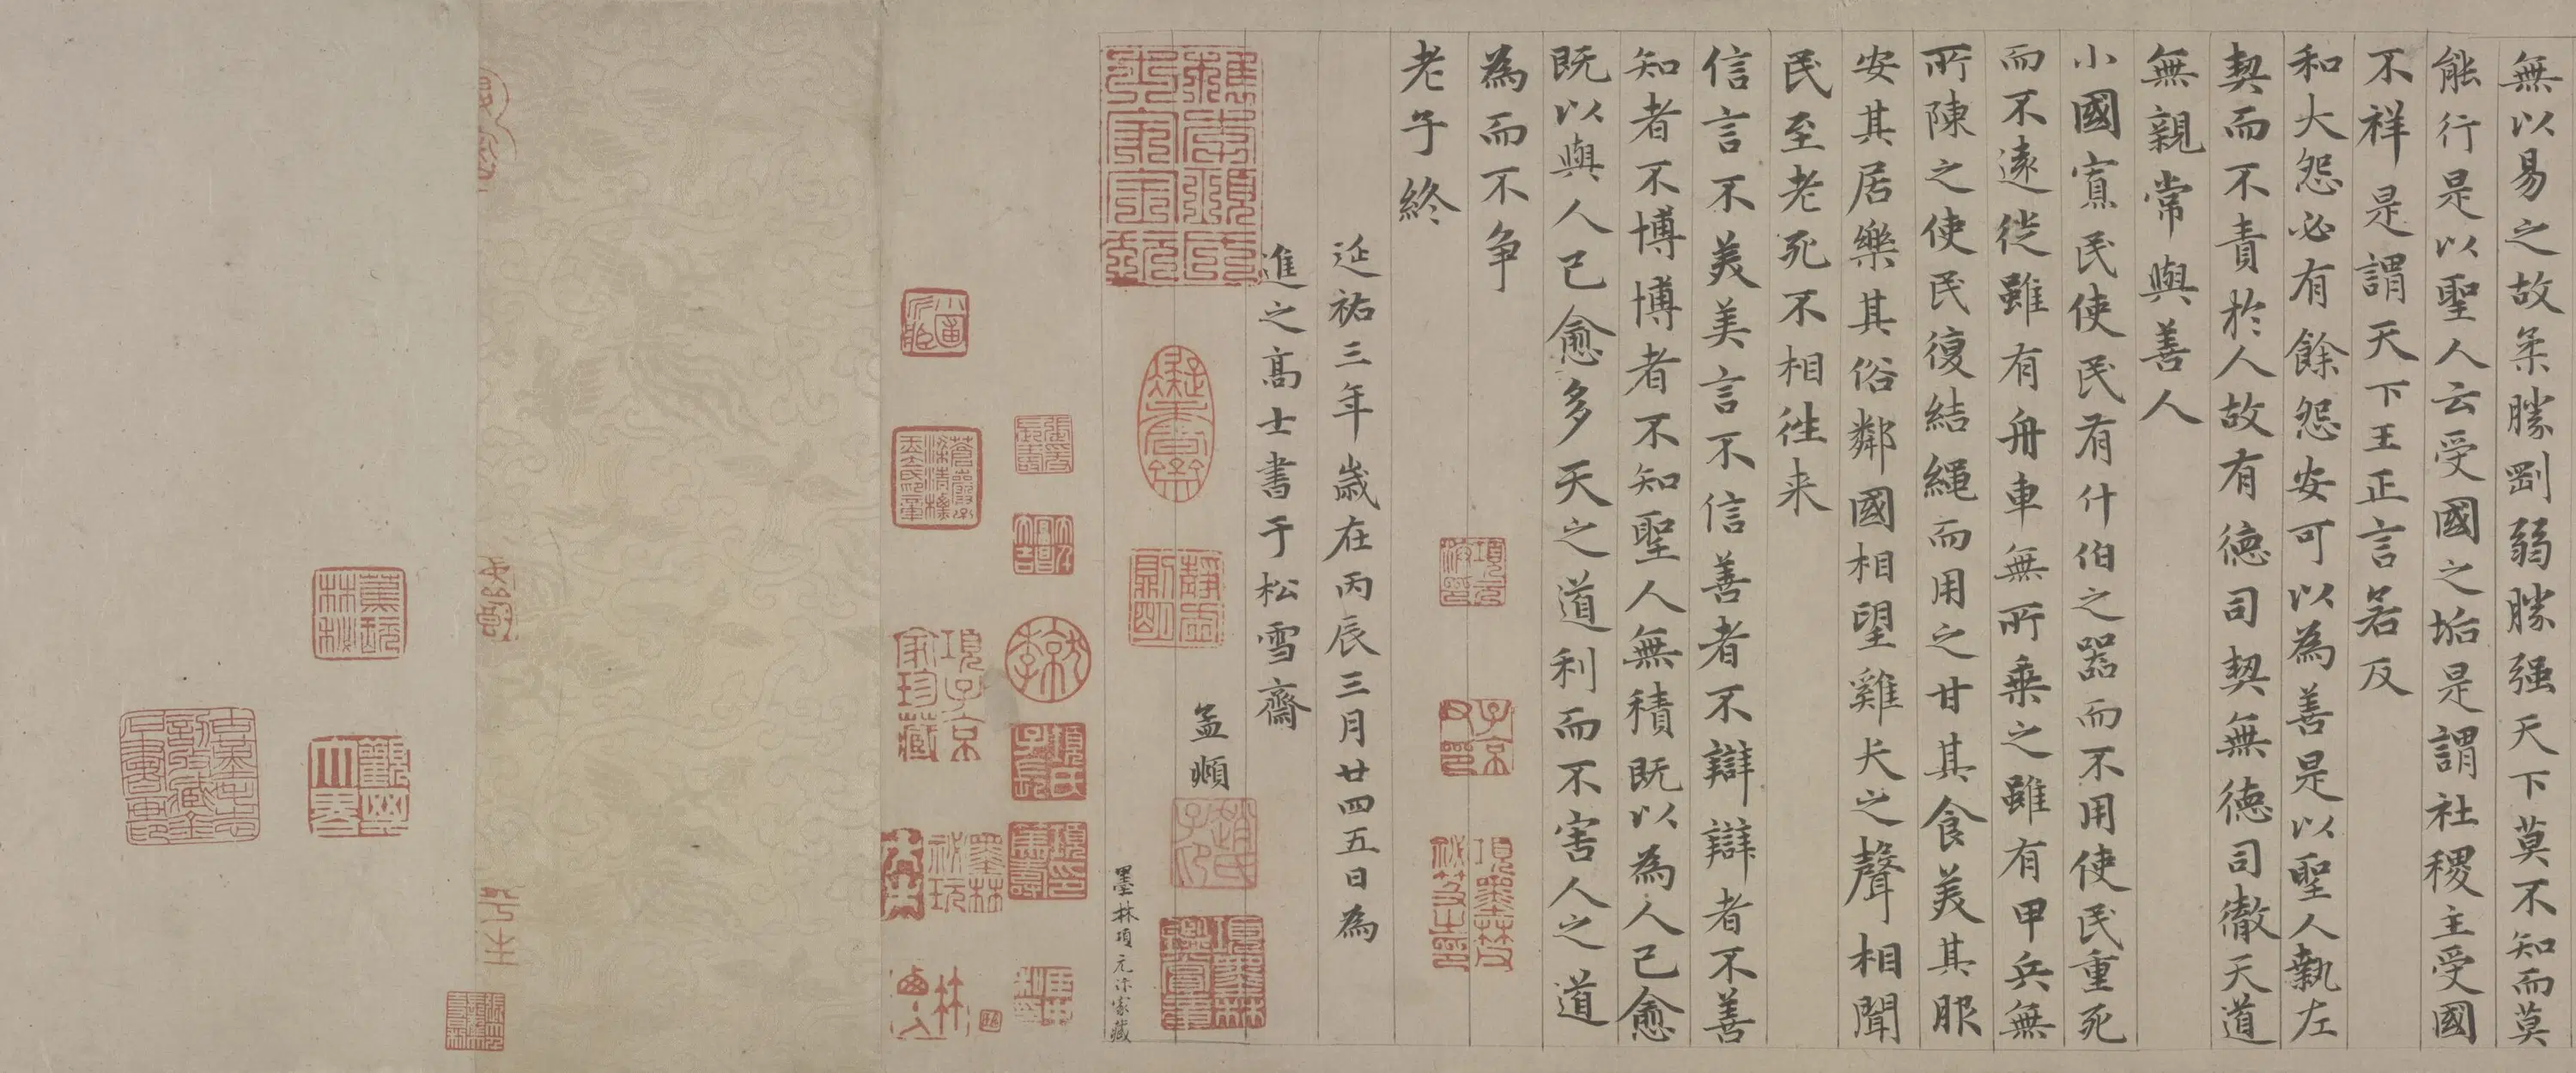 無以易之故柔勝剛弱勝强天下莫不知而莫
能行是以聖人云受國之垢是謂社稷主受國
不祥是謂天下王正言若反
和大怨必有餘怨安可以為善是以聖人執左
契而不責於人故有德司契無德司徹天道
無親常與善人
小國寡民使民有什伯之器而不用使民重死
而不遠徙雖有舟車無所乘之雖有甲兵無
所陳之使民復結繩而用之甘其食美其服
安其居樂其俗鄰國相望雞犬之聲相聞
民至老死不相往来
信言不美美言不信善者不辯辯者不善
知者不博博者不知聖人無積既以為人己愈
有既以與人己愈多天之道利而不害人之道
為而不争
老子終
延祐三年歲在丙辰三月廿四五日為
進之高士書于松雪齋
孟頫
墨林項元汴家藏
趙氏子昂
項子京家珍藏
墨林祕玩
項元汴印
子京父印
項墨林父祕笈之印
項墨林鑑賞章
蕉林秘玩
觀其大略
蒼巖子梁清標玉立氏印章